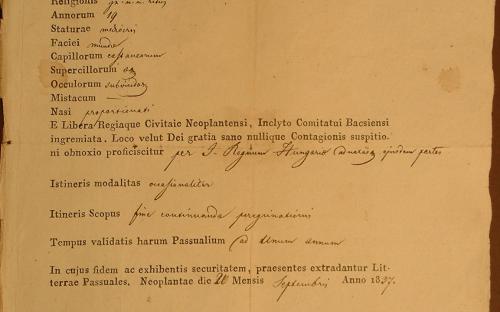 Religionis gr. n. u. ritus
Annorum 19
Staturae mediocris
Faciei mundae
Capillorum castaneorum
Supercillorum
Occulorum subviridor
Mistacum —
Nasi proportionati
E Libera Regiaque Civitaie Neoplantensi, Inclyto Comitatui Bacsiensi
ingremiata, Loco velut Dei gratia sano nullique Contagionis suspitio.
ni obnoxio proficiscitur per I. Regnum Hungariae adnexas ejusdem partes
Istineris modalitas occasionaliter
Itineris Scopus fine continuanda peregrinationis
Tempus validatis harum Passualium ad unum annum
In cujus fidem ac exhibentis securitatem, praesentes extradantur Lit-
terrae Passuales. Neoplantae die Mensis Septembris Anno 1837.